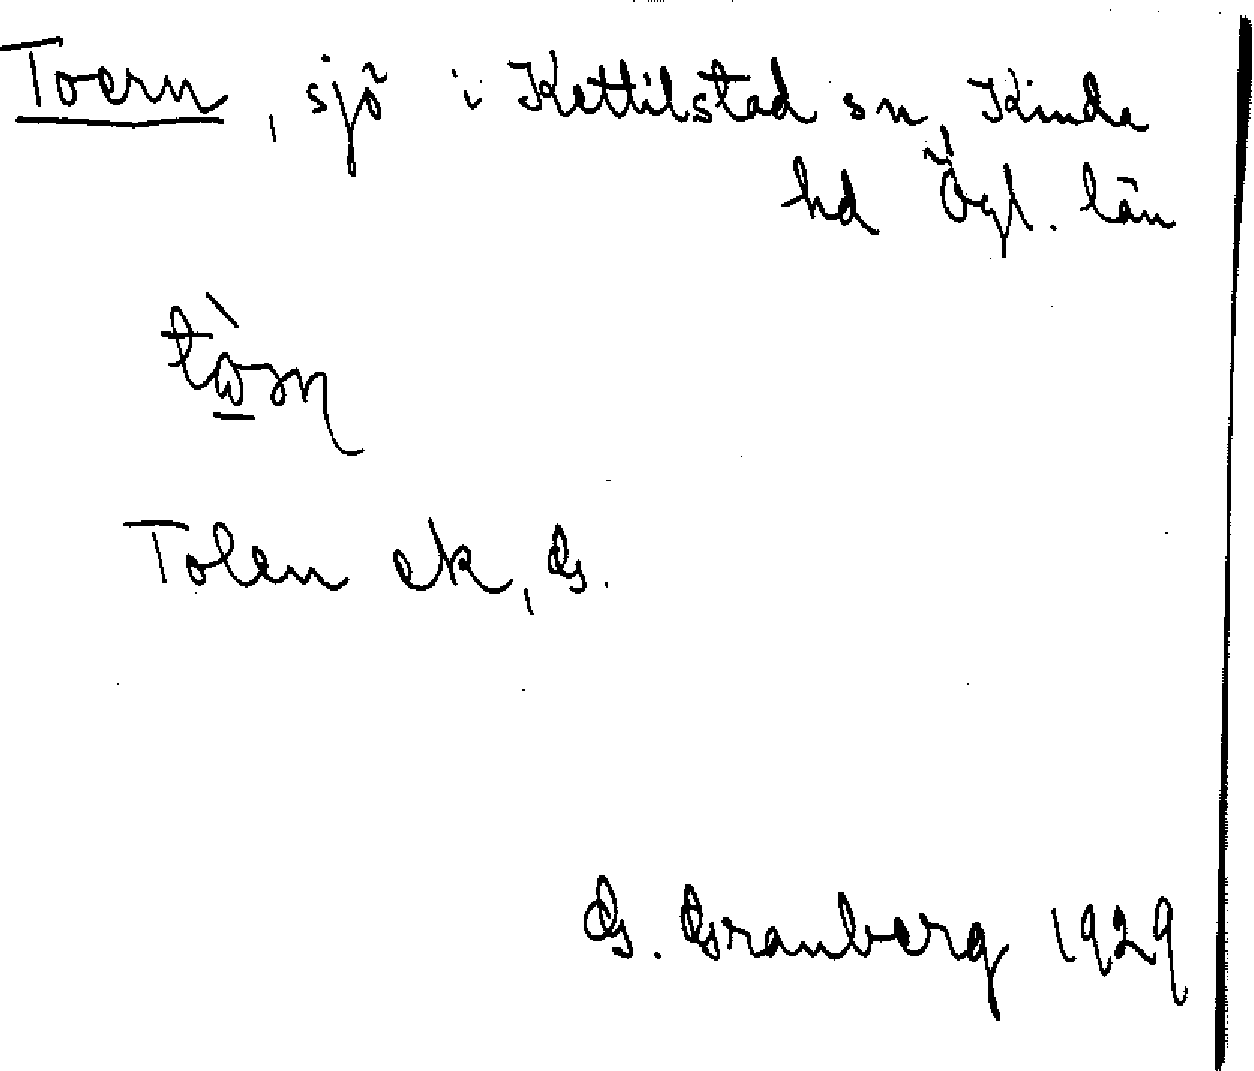 Toern, sjö i Kettilstad sn, Kinda
hd Ögl. län
Tolen ek, G.
G. Granberg 1929